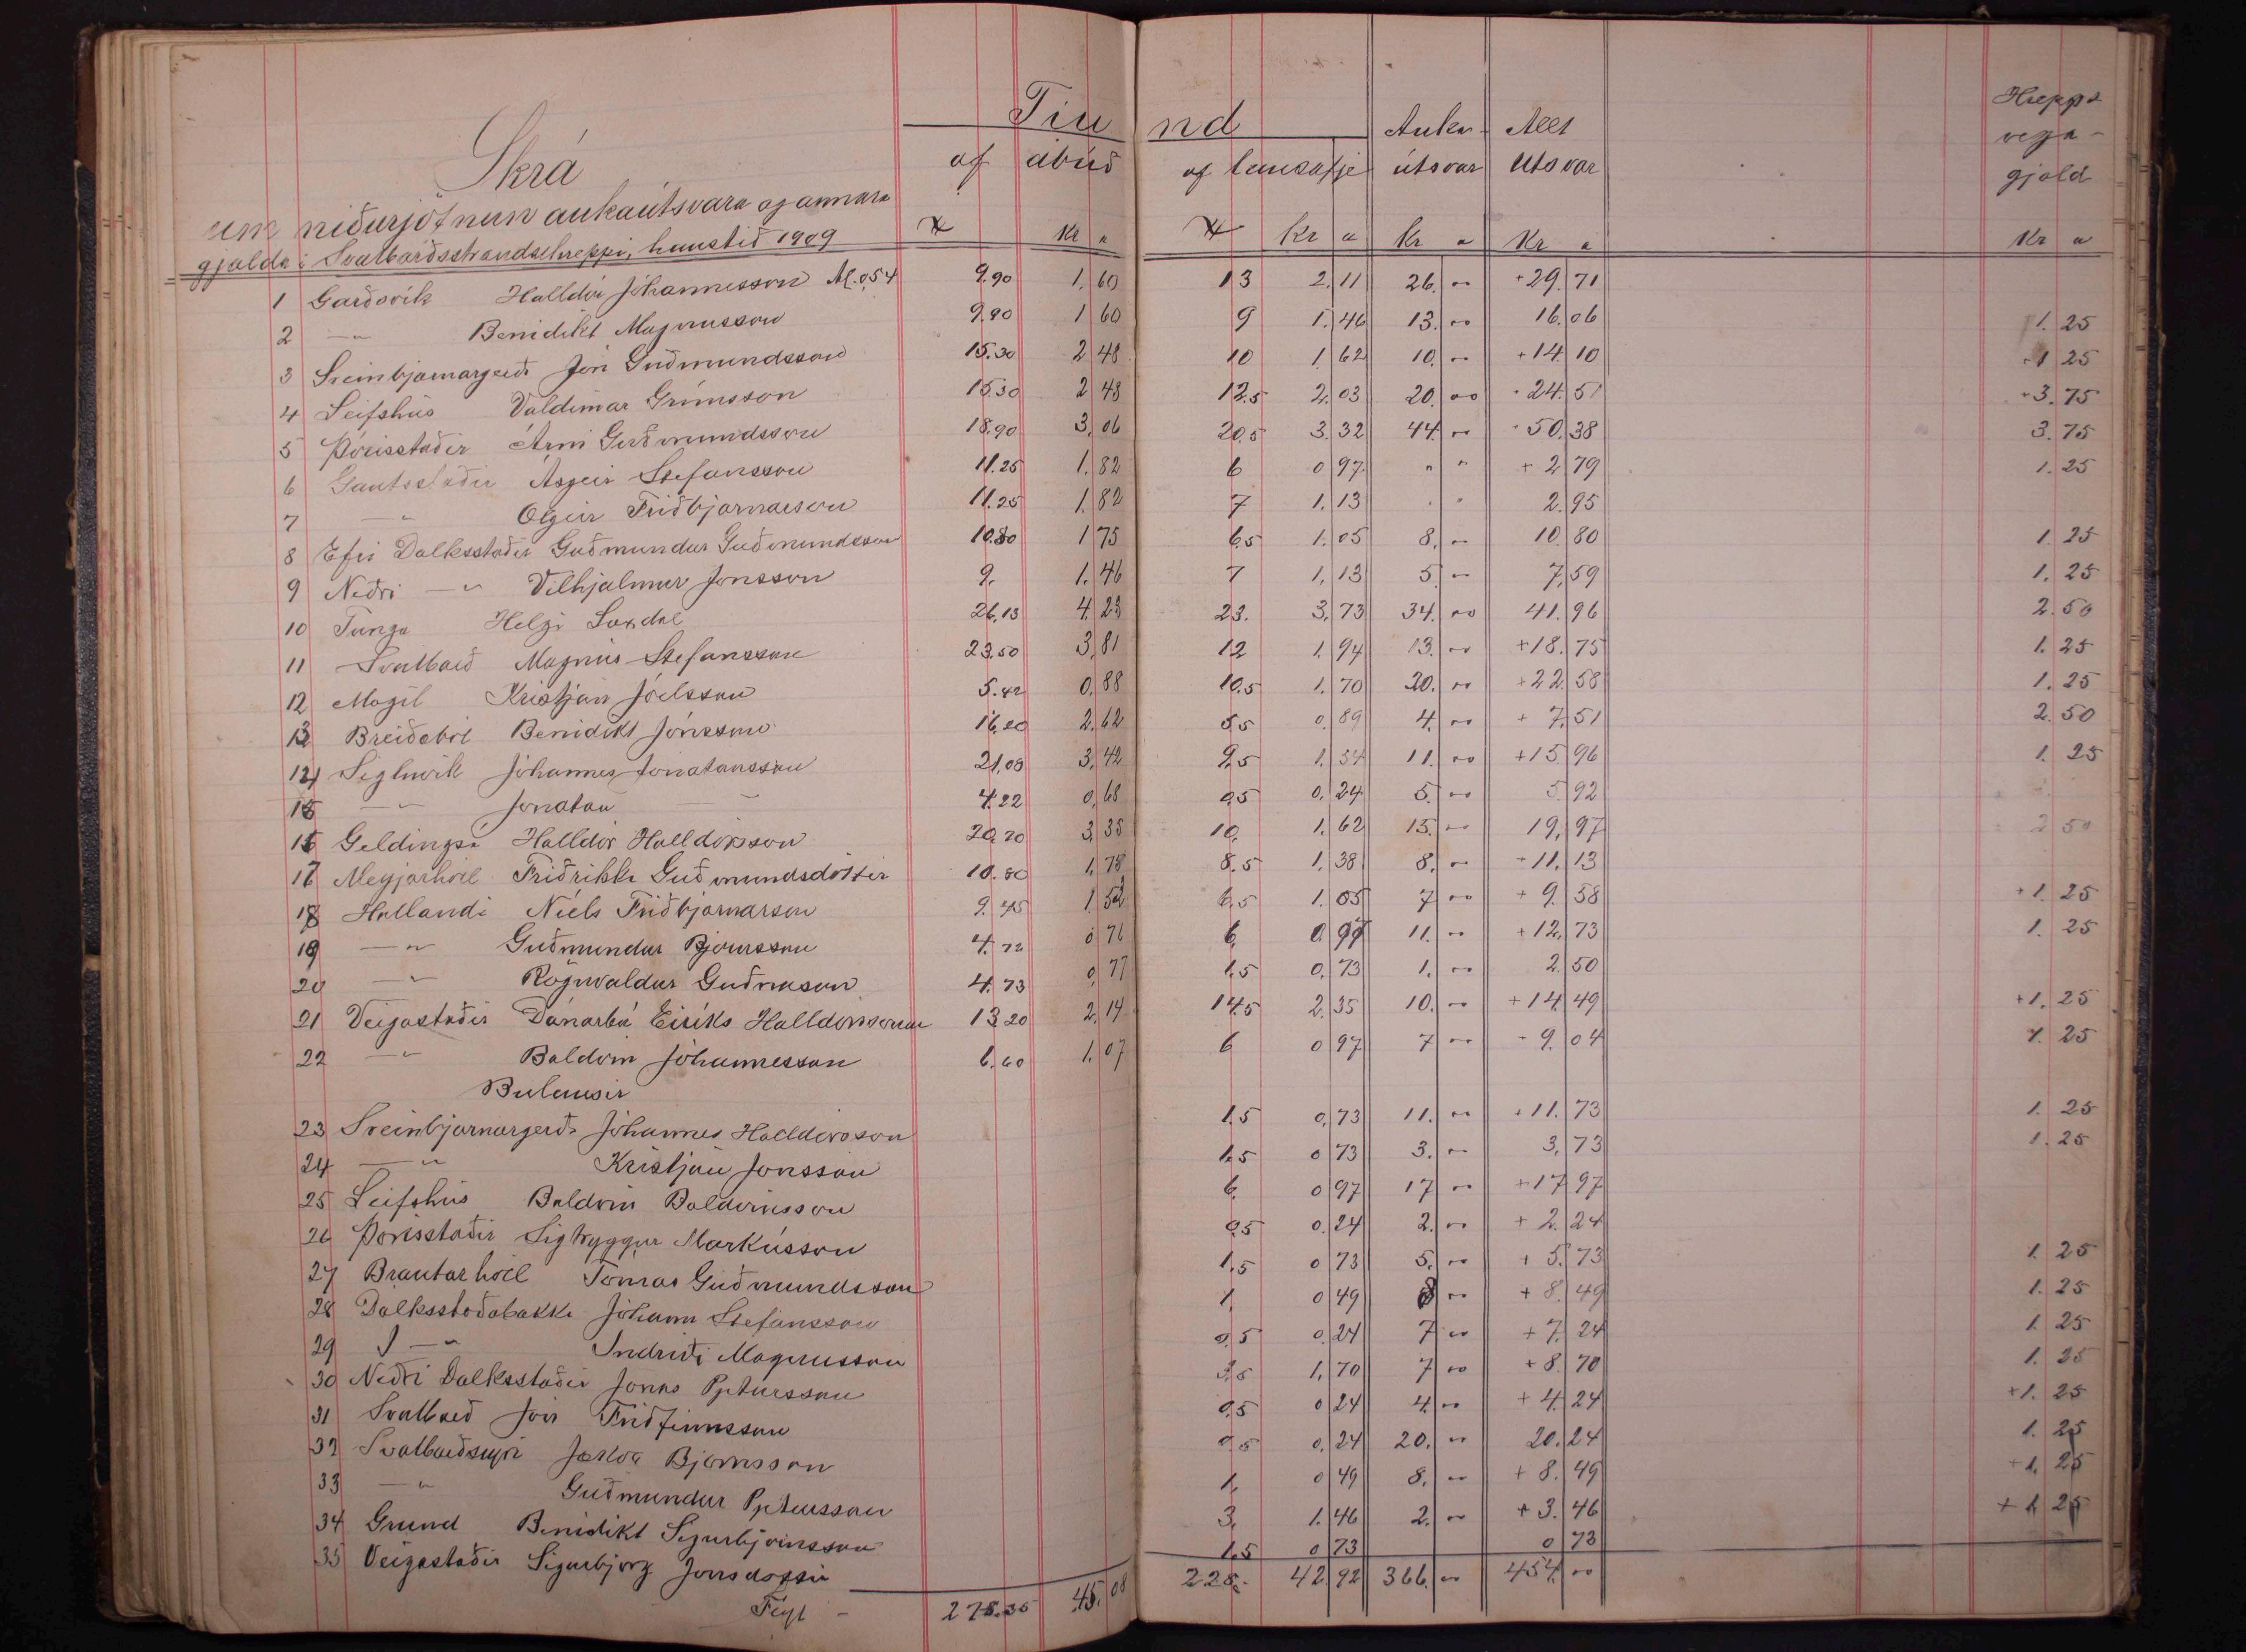 Tíu nd Auka Allt Hrepps
Skrá af ábúð af lausafje útsvar útsvar vega-
um niðurjöfnun aukaútsvara og annara gjald
gjalda í Svalbarðsstrandarhreppi, haustið 1909 Kr a Kr a Kr a Kr a Kr a
1 Garðsvík Halldór Jóhannesson Al. 0,54 9.90 1.60 13 2.11 26. 00 +29.71
2 —"— Benidikt Magnusson 9.90 1 60 9 1.46 13. 00 16.06 1. 25
3 Sveinbjarnargerði Jón Guðmundsson 15.30 2 48 10 1.62 10. 00 +14 10 1 25
4 Leifshús Valdimar Grímsson 15.30 2 48 12.5 2.03 20. 00 24.51 3.75
5 Þórisstaðir Árni Guðmundsson 18.90 3.06 20.5 3.32 44. 00 50.38 3.75
6 Gautsstaðir Ásgeir Stefansson 11.25 1.82 6 0 97 " " + 2 79 1.25
7 —"— Olgeir Friðbjarnarson 11.25 1.82 7 1.13 " " 2.95
8 Efri Dalksstaðir Guðmundur Guðmundsson 10.80 1 75 6.5 1.05 8. 00 10.80 1.25
9 Neðri —"— Vilhjalmur Jonsson 9. 1.46 7 1,13 5 00 7,59 1.25
10 Tunga Helgi Laxdal 26,13 4.23 23. 3,73 34. 00 41.96 2.50
11 Svalbarð Magnús Stefansson 23.50 3,81 12 1.94 13. 00 +18.75 1.25
12 Mógil Kristján Jóelsson 5.42 0,88 10.5 1.70 20. 00 +22 58 1.25
13 Breiðaból Benidikt Jónsson 16,20 2.62 5.5 0.89 4. 00 + 7.51 2.50
14 Sigluvík Jóhannes Jonatansson 21,08 3,42 9.5 1.54 11. 00 +15 96 1. 25
15 —"— Jonatan — 4.22 0,68 0.5 0.24 5. 00 5.92
16 Geldingsá Halldór Halldórsson 20.70 3,35 10. 1.62 15. 00 19,97 2 50
17 Meyjarhóll Friðrikka Guðmundsdóttir 10.80 1,75 8.5 1.38 8. 00 +11.13
18 Hallandi Níels Friðbjarnarson 9.45 1.53 6.5 1.05 7 00 + 9.58 +1. 25
19 —"— Guðmundur Bjornsson 4.72 0 76 6 0.97 11. 00 +12,73 1. 25
20 —"— Rögnvaldur Guðnason 4.73 0,77 1.5 0,73 1. 00 2.50
21 Veigastaðir Dánarbú Eiríks Halldórssonar 13 20 2,14 14.5 2.35 10. 00 +14 49 +1. 25
22 —"— Baldvin Jóhannesson 6,60 1.07 6 0 97 7 00 9.04 1. 25
Bulausir
23 Sveinbjarnargerði Jóhannes Halldórsson 1.5 0,73 11. 00 11.73 1. 25
24 —"— Kristján Jonsson 1.5 0 73 3. 00 3,73 1.25
25 Leifshús Baldvin Baldvinsson 6 0 97 17 00 +17 97
26 Þórisstaðir Sigtryggur Markússon 0.5 0.24 2. 00 + 2.24
27 Brautarhóll Tómas Guðmundsson 1,5 0 73 5. 00 + 5.73 1. 25
28 Dálksstaðabakki Jóhann Stefánsson 1, 0 49 8 00 + 8.49 1.25
29 —"— Indriði Magnusson 0,5 0.24 7 00 + 7. 24 1. 25
30 Neðri Dalksstaðir Jónas Pjetursson 3,5 1,70 7 00 + 8.70 1. 25
31 Svalbarð Jón Friðfinnsson 0.5 0 24 4. 00 + 4.24 +1. 25
32 Svalbarðseyri Jakob Bjornsson 0.5 0,24 20. 00 20.24 1. 25
33 —"— Guðmundur Pjetursson 1, 0 49 8. 00 + 8.49 +1. 25
34 Grund Benidikt Sigurbjörnsson 3, 1.46 2. 00 + 3.46 + 1 25
35 Veigastaðir Sigurbjörg Jonsdóttir 1.5 0 73 0 73
Flyt - 278.35 45.08 228. 42 92 366. 00 454. 00